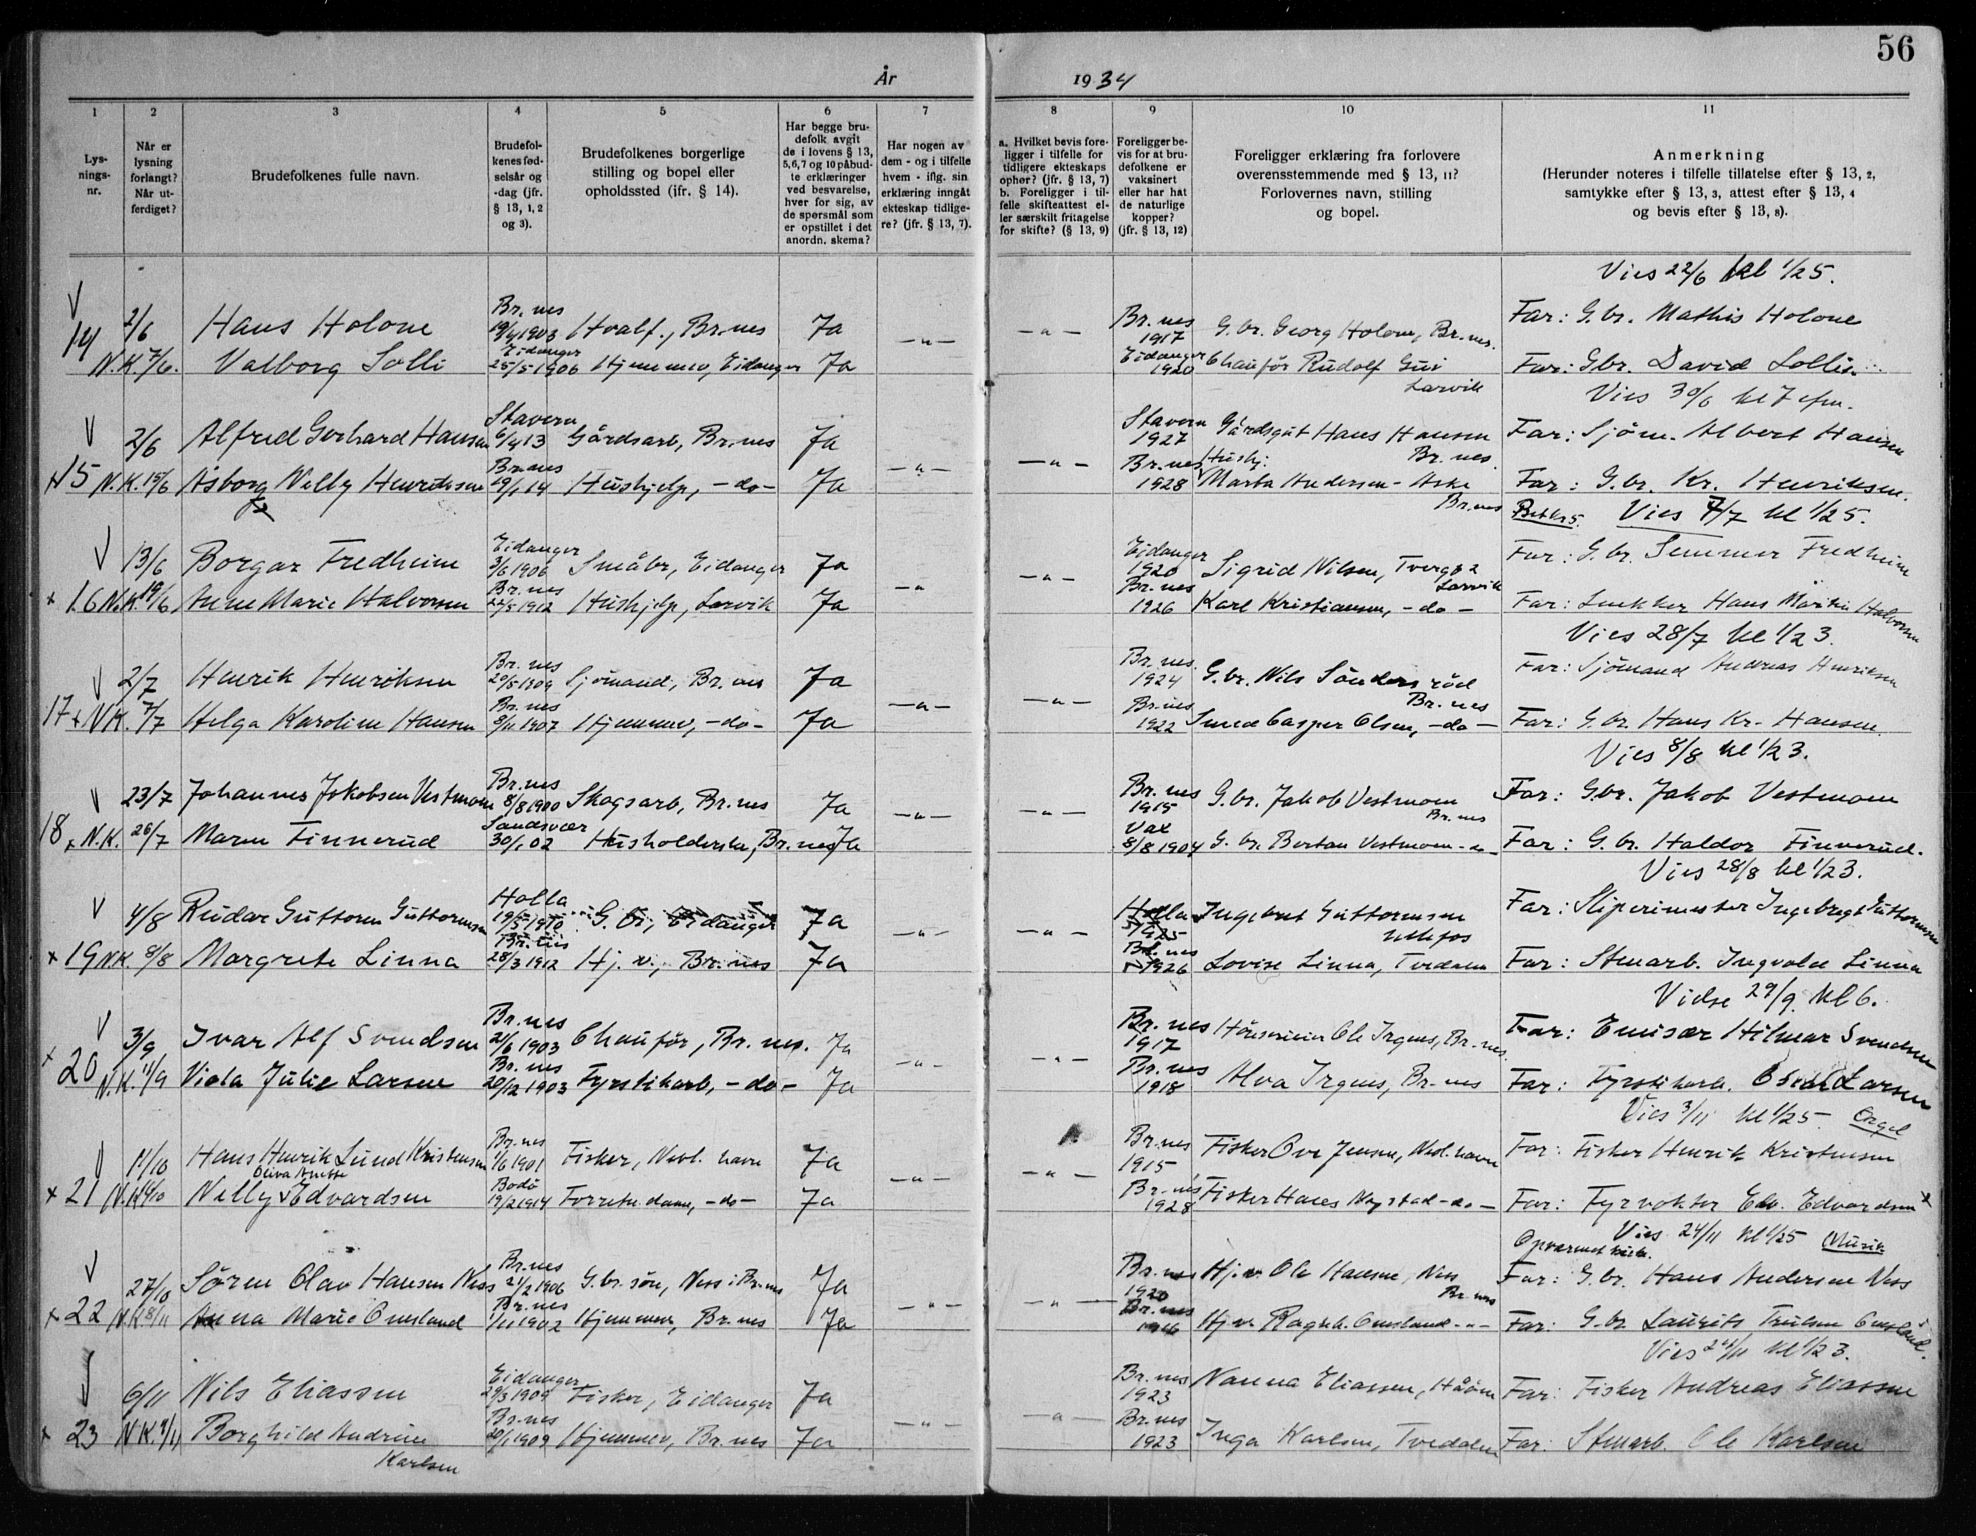 56
År 1934
1 2 3 4 5 6 7 8 9 10 11
Lys-
nings-
nr.
Når er
lysning
forlangt?
Når ut-
ferdiget?
Brudefolkenes fulle navn.
Brudefol-
kenes fød-
selsår og
-dag (jfr.
§ 13, 1, 2
og 3).
Brudefolkenes borgerlige
stilling og bopel eller
opholdssted (jfr. § 14).
Har begge bru-
defolk avgit
de i lovens § 13,
5, 6, 7 og 10 påbud-
te erklæringer
ved besvarelse,
hver for sig, av
de spørsmål som
er opstillet i det
anordn. skema?
Har nogen av
dem - og i tilfelle
hvem - iflg. sin
erklæring inngåt
ekteskap tidlige-
re? (jfr. § 13, 7).
a. Hvilket bevis fore-
ligger i tilfelle for
tidligere ekteskaps
ophør? (jfr. § 13, 7)
b. Foreligger i til-
felle skifteattest el-
ler særskilt fritagelse
for skifte? (§ 13, 9)
Foreligger be-
vis for at bru-
defolkene er
vaksinert
eller har hat
de naturlige
kopper?
(jfr. § 13, 12)
Foreligger erklæring fra forlovere
overensstemmende med § 13, 11?
Forlovernes navn, stilling
og bopel.
Anmerkning
(Herunder noteres i tilfelle tillatelse efter § 13, 2,
samtykke efter § 13, 3, attest efter § 13, 4
og bevis efter § 13, 8).
Vies 22/6 kl 1/2 5.
14 2/6 Hans Holone Br.nes 19/4 1903 Hvalf., Br.nes Ja -"- -"- Br.nes 1917 G.br. Georg Holone, Br.nes. Far: G.br. Mathis Holone
N.K. 7/6. Valborg Solli Eidanger 25/5 1906 Hjemmev, Eidanger Ja Eidanger 1920 Chauför Rudolf Larvik Far: Gbr. David Solli
Vies 30/6 kl 7 efm.
15 2/6 Alfred Gerhard Hansen Stavern 6/4 13 Gårdsarb, Br.nes Ja -"- -"- Stavern 1927 Gårdsgut Hans Hansen Br.nes. Far: Sjöm. Albert Hansen
N.K. 15/6 Åsborg Nelly Henriksen Br.nes 19/1 14 Hushjelp, -do- Ja Br.nes 1928 Hushj. Marta Andersen - Aske Br.nes Far: G.br. Kr. Henriksen.
Vies 7/7 kl 1/2 5.
16 13/6 Borgar Fredheim Eidanger 3/6 1906 Småbr, Eidanger Ja -"- -"- Eidanger 1920 Sigrid Nilsen, Tverg. 2 Larvik Far: G.br. Fredheim
N.K. 19/6 Anne Marie Halvorsen Br.nes 22/5 1912 Hushjelp, Larvik Ja Br.nes 1926 Karl Kristiansen, -do- Far: Hans Martin Halvorsen
Vies 28/7 kl 1/2 3.
17 2/7 Henrik Henriksen Br.nes 20/5 1909 Sjömand, Br.nes Ja -"- -"- Br.nes. 1924 G.br. Nils Söndersröd Br.nes Far: Sjömand Andreas Henriksen
N.K. 7/7 Helga Karoline Hansen Br.nes 9/11 1907 Hjemmev, -do- Ja Br.nes 1922 Smed Casper Olsen, -do- Far: G.br. Hans Kr. Hansen.
Vies 8/8 kl 1/2 3.
18 23/7 Johannes Jakobsen Vestmoen Br.nes 8/8 1900 Skogsarb, Br.nes Ja -"- -"- Br.nes 1915 G.br. Jakob Vestmoen Br.nes Far: G.br. Jakob Vestmoen
N.K. 26/7 Maren Finnerud Sandsvær 30/1 02 Husholderske, Br.nes Ja Vax 8/8 1904 G.br. Bertau Vestmoen -"- Far: G.br. Haldor Finnerud.
Vies 28/8 kl 1/2 3.
19 4/8 Reidar Guttorm Guttormsen Holla 19/5 1910 G.br, Eidanger Ja -"- -"- Holla 1925 Ingebret Guttormsen Ulefos Far: Sliperimester Ingebregt Guttormsen
NK. 8/8 Margrete Linna Br.nes 28/3 1912 Hj.v., Br.nes Ja Br.nes 1926 Lovise Linna, Tvedalen Far: Stenarb. Ingvald Linna
Vidse 29/9 kl 6.
20 3/9 Ivar Alf Svendsen Br.nes 21/6 1903 Chauför, Br.nes. Ja -"- -"- Br.nes 1917 Ole Irgens, Br.nes. Far: Emisær Hilmar Svendsen
N.K. 11/9 Viola Julie Larsen Br.nes 20/12 1903 Fyrstikarb, -do- Ja Br.nes 1918 Alva Irgens, Br.nes Far: Fyrstikarb. Larsen
Vies 3/11 kl 1/2 5 Orgel
21 11/10 Hans Henrik Lund Kristensen Br.nes 1/6 1901 Fisker, Nevl. havn Ja -"- -"- Br.nes 1915 Fisker Ove Jensen, Nevl. havn Far: Fisker Henrik Kristensen
N.K. Nelly Oliva Anette Edvardsen Bodö 19/2 1914 Forretn.dame, -do- Ja Br.nes 1928 Fisker Hans Nystad -do- Far: Fyrvokter Edv. Edvardsen
Vies 24/11 kl 1/2 5 Musik
Opvarmet kirke.
22 27/10 Sören Olav Hansen Ness Br.nes 21/2 1906 G.br. sön, Ness i Br.nes Ja -"- -"- Br.nes 1920 Hj.v. Ole Hansen, Ness Br.nes Far: G.br. Hans Andersen Ness
N.K. 8/11 Anna Marie Omsland Br.nes 1/11 1902 Hjemmev, Br.nes Ja Br.nes 1916 Hj.v. Ragnh. Omsland -"- Far: G.br Laurits Trulsen Omsland.
Vies 24/11 kl 1/2 3.
23 6/11 Nils Eliassen Eidanger 29/3 1909 Fisker, Eidanger Ja -"- -"- Br.nes 1923 Nanna Eliassen, Håöen Far: Fisker Andreas Eliassen
N.K. 9/11 Borghild Andrine Karlsen Br.nes 20/1 1909 Hjemmev, Br.nes Ja Br.nes 1923 Inga Karlsen, Tvedalen Far: Stenarb. Ole Karlsen